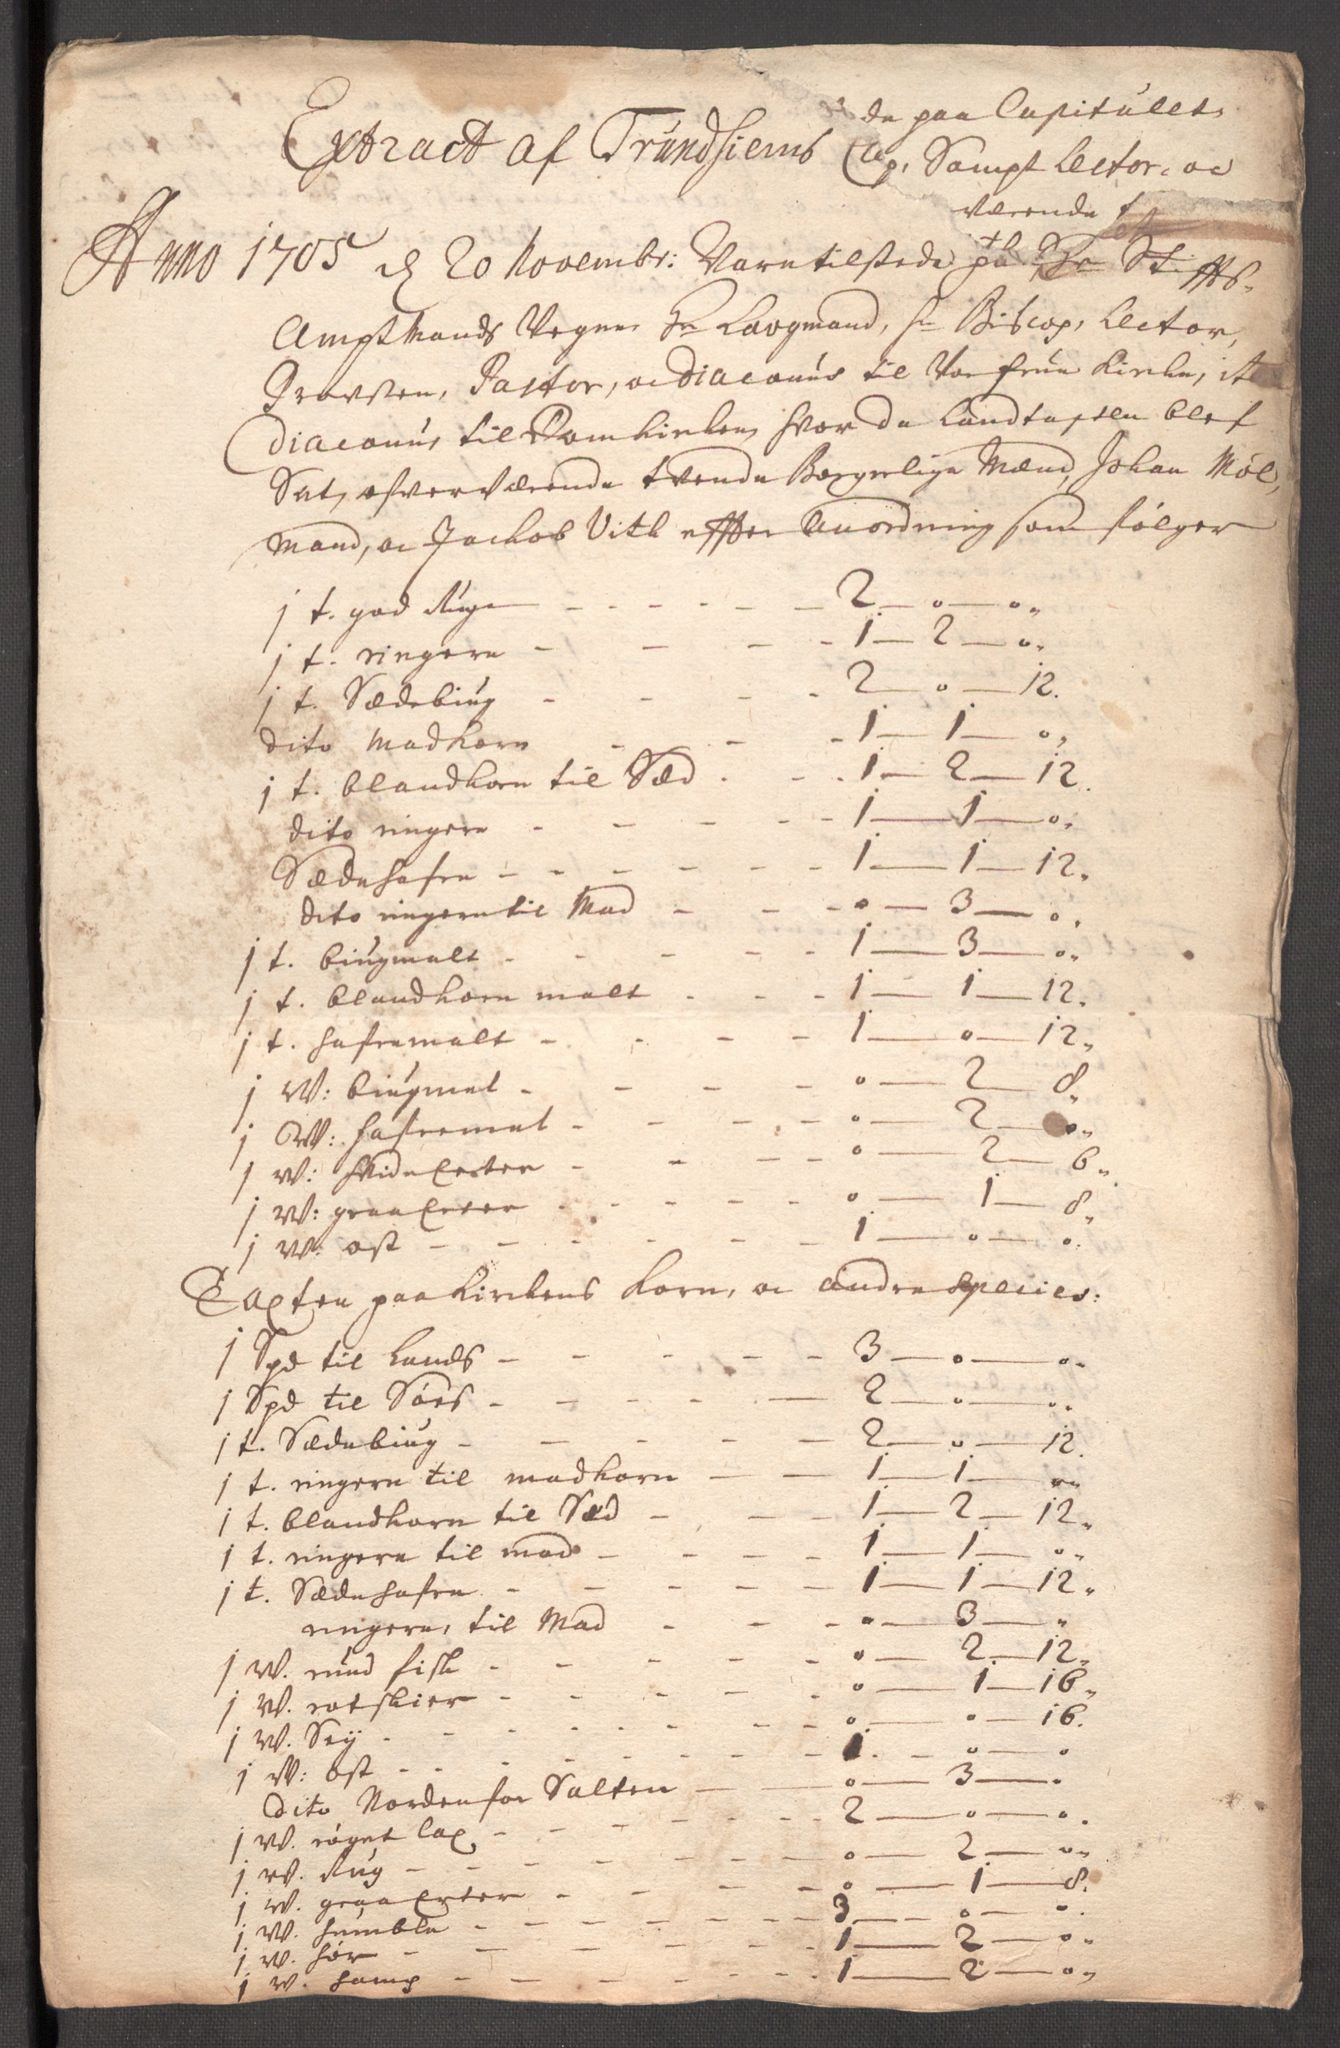 Extract af Trundhiems
de paa Capitulet
Sampt lector oc
værende
Anno 1705 d 20 Novembr: Varn tilstede paa Hr Stiffts-
Amptmands Vegne Hr Laugmand, Hr Biscop, Lector,
Provsten, Pastor, oc Diaconus til Vor frue Kirke,
Diaconus til Domkirken, hvor da Landtaxten blef
Sat, ofverværende tvende Borgerlige Mænd, Johan Möl,
mand, oc Jachob Vitl effter Anordning som fölger
1 t. god Ruge - - - 2 - o - o
1 t. ringere - - - 1 - 2 - o
1 t. Sædebiug - - - 2 - o - 12.
dito Madkorn - - - 1 - 1 - o
1 t. blandkorn til Sæd - - - 1 - 2 - 12.
dito ringere - - - 1 - 1 - o
Sædehafre - - - 1 - 1 - 12
dito ringere til Mad - - - o - 3 - o
1 t. biugmalt - - - 1 - 3 - o
1 t. blandkorn malt - - - 1 - 1 - 12
1 t. hafremalt - - - 1 - o - 12
1 W: biugmel - - - o - 2 - 8
1 W: hafremel - - - o - 2 - o
1 W: hvide Erter - - - o - 2 - 6
1 W: graa Erter - - - o - 1 - 8
1 W. ost - - - 1 - o - o
Taxten paa Kirkens Korn, oc andre Species:
1 Spd til Lands - - - 3 - o - o
1 Spd til Söes - - - 2 - o - o
1 t. Sædebiug - - - 2 - o - 12
1 t. ringere til madkorn - - - 1 - 1 - o
1 t. blandkorn til Sæd - - - 1 - 2 - 12
1 t. ringere til mad - - - 1 - 1 - o
1 t. Sædehafre - - - 1 - 1 - 12
ringere, til Mad - - - o - 3 - o
1 W. rund fisk - - - o - 2 - 12
1 W. rotskier - - - o - 1 - 16
1 W. Seÿ - - - o - o - 16.
1 W: ost - - - 1 - o - o
dito Nordenfor Salten - - - o - 3 - o
1 W. röget lax - - - 2 - o - o
1 W. Rug - - - o - 2 - o
1 W. graa Erter - - - o - 1 - 8.
1 W. humble - - - 3 - o - o
1 W. hör - - - 1 - 2 - o
1 W. hamp - - - 1 - 2 - o